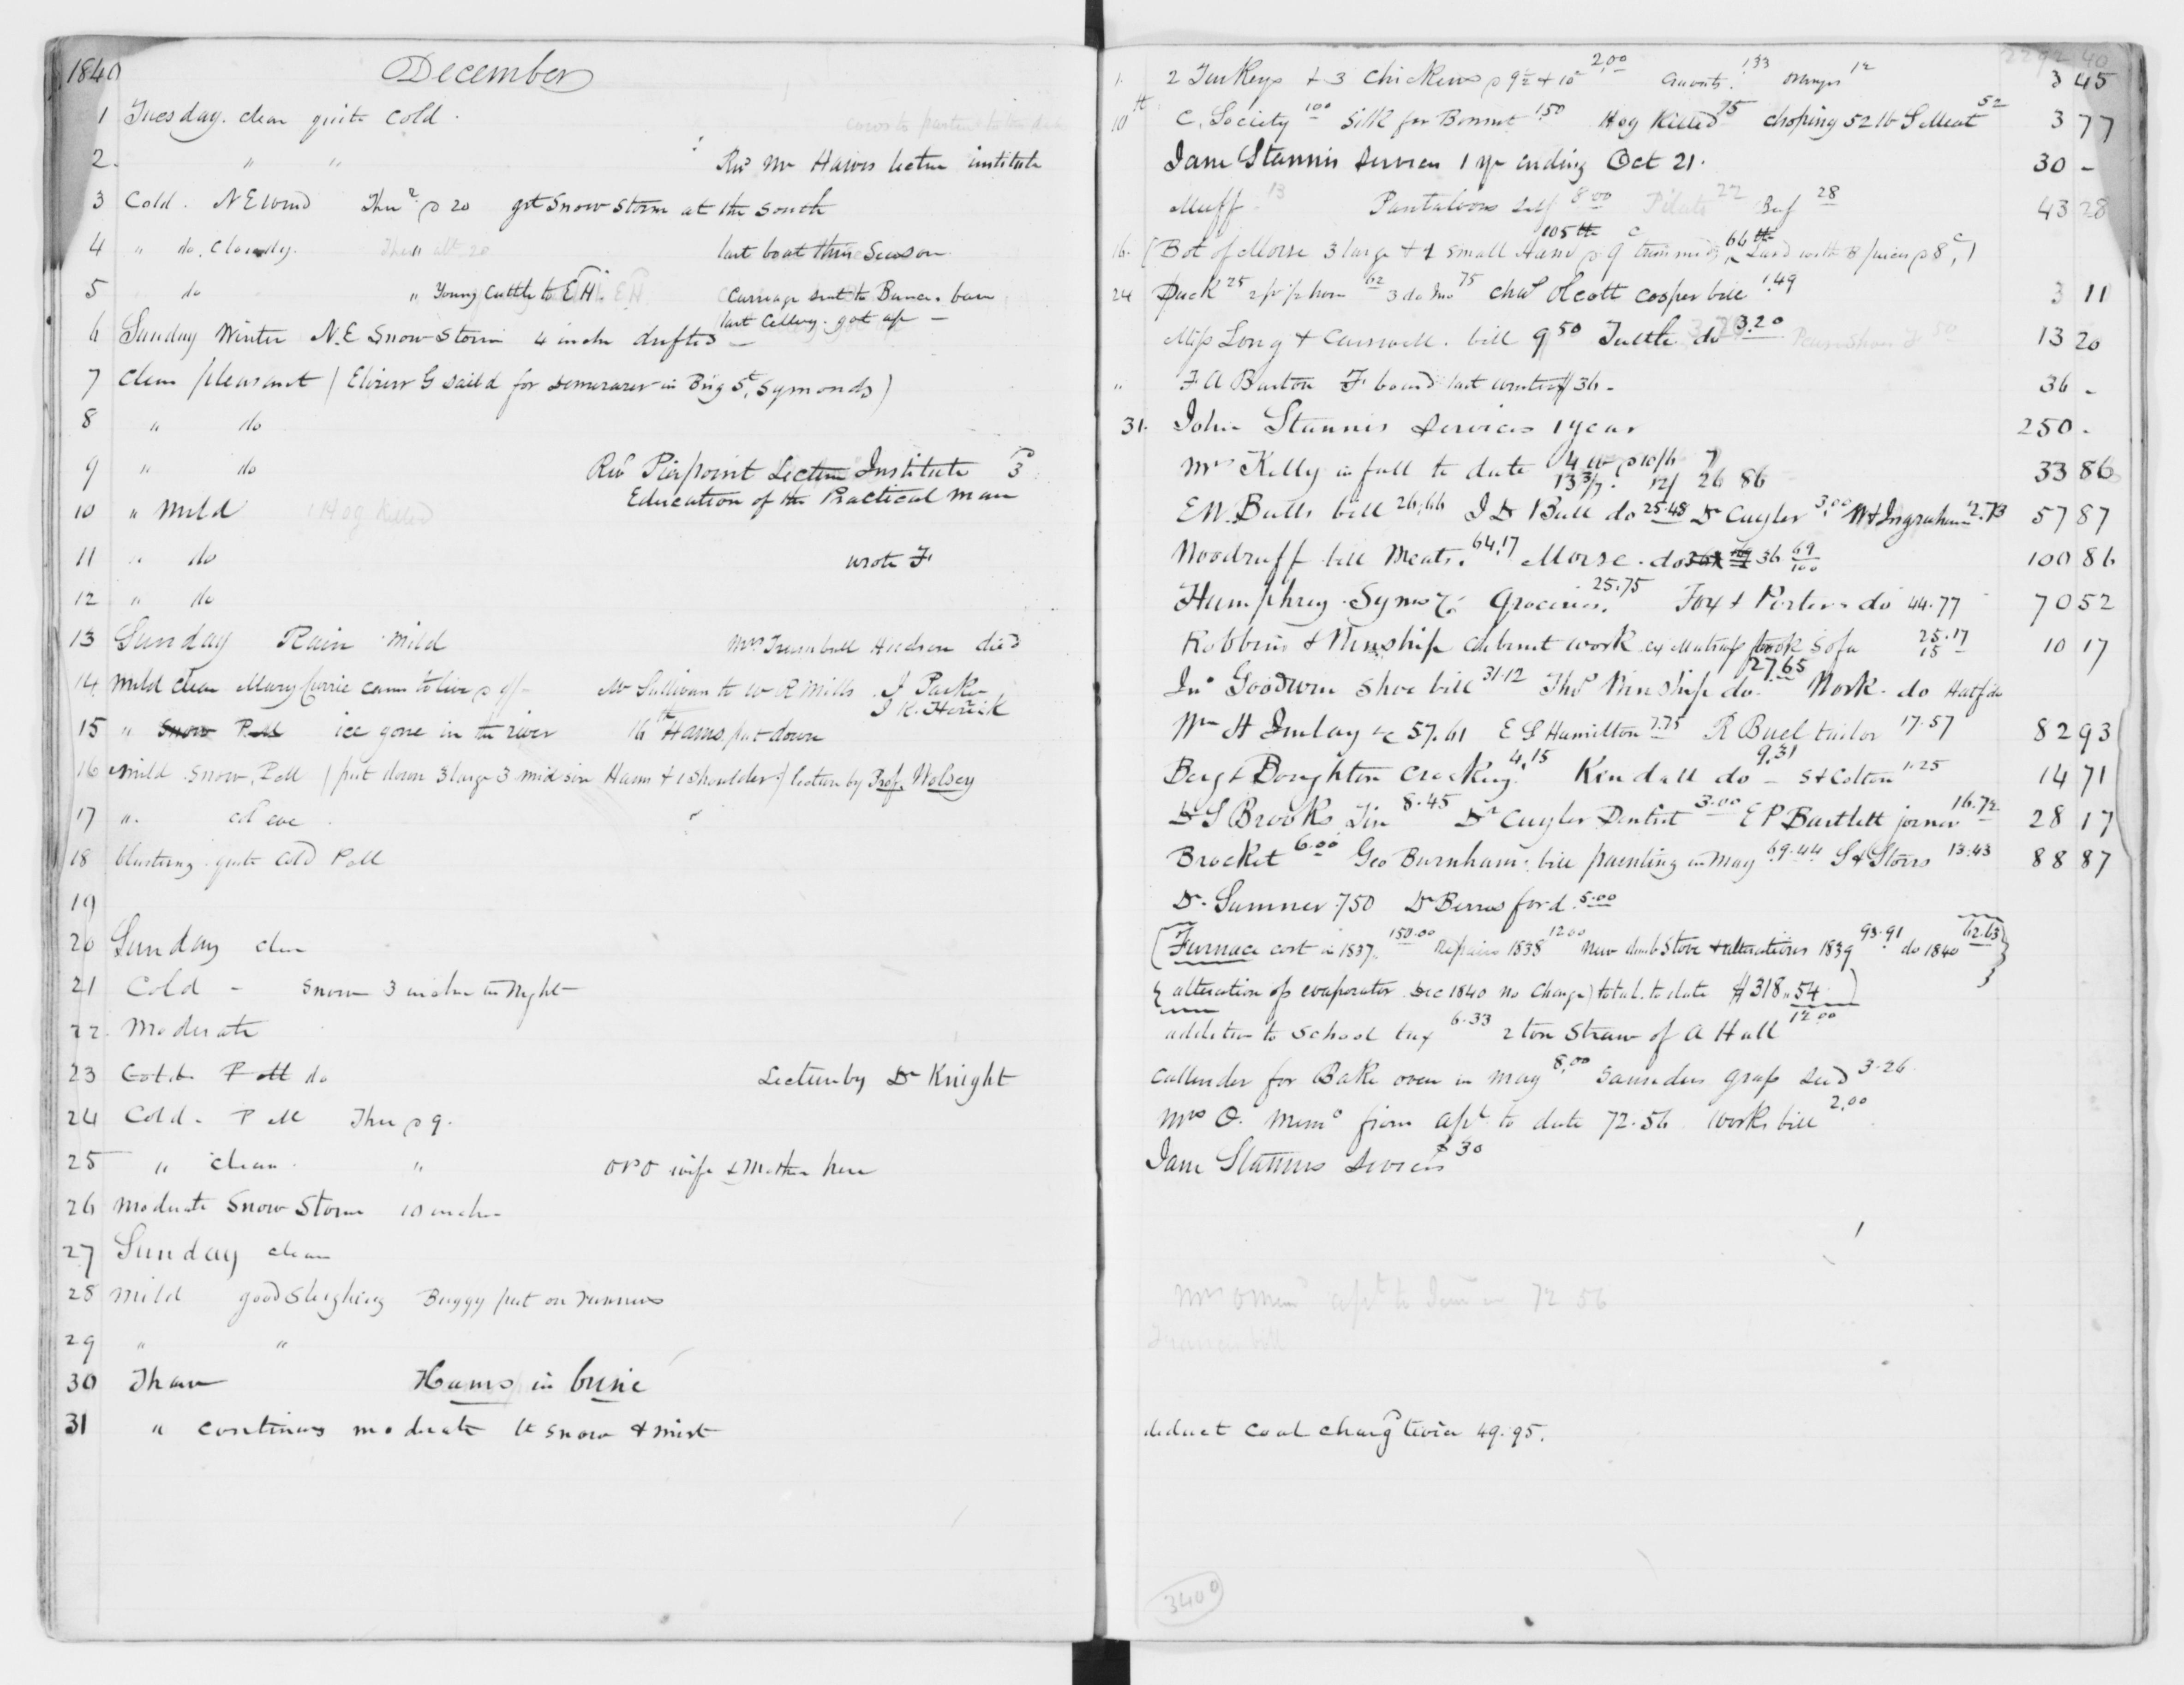 1840 December
1 Tuesday. clear quite cold.
2. " " Revd Mr Hawes lectur institute
3 Cold. N E wind Thr 20 gt Snow storm at the south
4 " do. Cloudy. last boat this Season
5 do " Young Cuttle to E H. Carriage sent to barn
last Cellery got up —
6 Sunday Winter N.E Snow Storm 4 inche drifted —
7 Clear pleasant ( G saild for in Brig St. Symonds)
8 " do
9 " do Revd Pierpoint Lecture Institute
Education of the Practical man
10 " Mild 1 Hog Killed
11 " do wrote F
12 " do
13 Sunday Rain mild Mrs Hudson died
14 Mild clear Mary came to live Mr Sullivan to W R Mills
15 " Snow P.M ice gone in the river 16th Hams put down
16 Mild Snow P.M (put down 3 large 3 mid size Hams & 1 shoulder) lecture by Prof. Wolsey
17 " cd eve
18 blustering quite Cold P.M
19
20 Sunday clear
21 Cold - Snow 3 inche in Night
22. Moderate
23 Cold. P M do Lecture by Dr Knight
24 Cold. P M Thr 9.
25 " Clear. " wife & Mother here
26 Moderate Snow Storm 10 inche
27 Sunday clear
28 Mild good sleighing Buggy put on runners
29 " "
30 Thaw Hams in brine
31 " continues moderate lt snow & mist
2292 40
1. 2 Turkeys & 3 Chickens 9½ & 10c 2.00 133 Oranges 12 3 45
10th C. Society 100 Silk for Bonnet 150 Hog Killed 75 choping 52 lb S Meat 52 3 77
Jane Stannis Services 1 yr ending Oct 21. 30 -
Muff 13 Pantaloons self 8.00 22 Beef 28 43 28
105 lb 64 lb
16. (Bot of Morse 3 large & 1 small Hams 9c trimmd Lard with 8c)
24 Duck 25 62 75 Chas Olcott Cooper bill 1.49 3 11
Miss Long & bill 9.50 Tuttle do 3.20 13 20
" F A Barton F board last winter $36 - 36 -
31. John Stannis Services 1 year 250 -
Mrs Kelly in full to date 26 86 33 86
E W. Bulls bill 26.66 I D Bull do 25.48 Dr Cuyler 3.00 Ingraham 2.73 57 87
Woodruff bill Meats. 64.17 Morse. do 36 69/100 100 86
Humphrey Syms Co Groceries. 25.75 Fox & Porter do 44.77 70 52
Robbins & Winship Cabinet work Sofa 25.17 15 10 17
Jno Goodwin Shoe bill 31.12 Thos Winship do. 27.65 Work. do
Wm H Imlay &c 57.61 E S Hamilton 7.75 R Buel tailor 17.57 82 93
Boughton Crockery 4.15 Kendall do - 9.31 S & Colton 1.25 14 71
D S Brooks Tin 8.45 Dr Cuyler Dentist 3.00 E P Bartlett joiner 16.72 28 17
Brocket 6.00 Geo Burnham bill painting in May 69.44 S & Storrs 13.43 88 87
Dr. Sumner 7.50 Dr Berresford. 5.00
(Furnace cost in 1837 150.00 Repairs 1838 12.00 New dumb Stove & alterations 1839 93.91 do 1840 62.63)
(alteration of evaporator Dec 1840 no charge) total to date $318.54)
addition to School tax 6.33 2 ton Straw of A Hall 12.00
Callender for Bake oven in May 8.00 Saunders grass seed 3.26
Mrs O. memo from apl to date 72.56 Works bill 2.00
Jane Stannis Services $30
Mrs O Mem apl to 72 56
bill
deduct Coal chargd twice 49.95.
3400